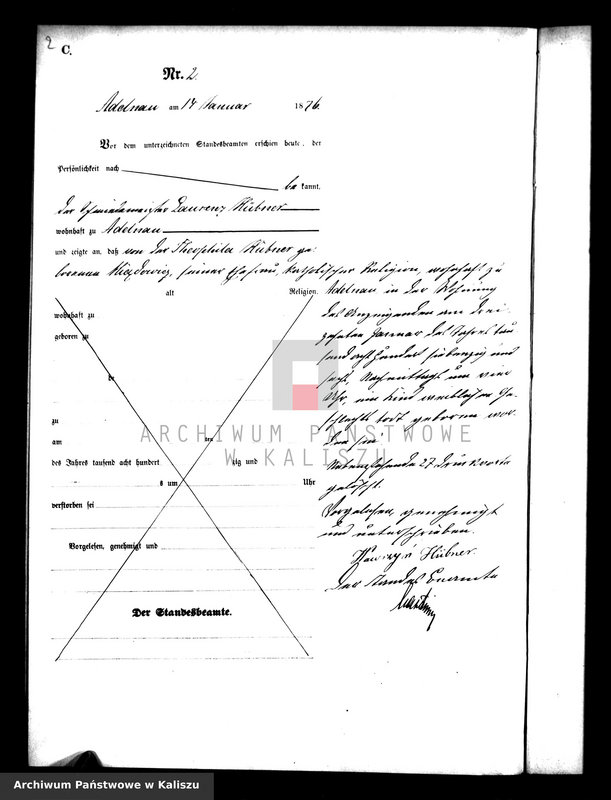 2
C.
Nr. 2.
Adelnau am 14 Januar 1876.
Vor dem unterzeichneten Standesbeamten erschien heute, der
Persönlichkeit nach
bekannt,
der Schmiedemeister Laurenz Hübner
wohnhaft zu Adelnau
und zeigte an, daß von der Theophila Hübner ge-
borenen, seiner Ehefrau, katholischer Religion, wohnhaft zu
alt Religion,
wohnhaft zu
geboren zu
zu
am ten
des Jahres tausend acht hundert zig und
s um Uhr
verstorben sei
Vorgelesen, genehmigt und
Der Standesbeamte.
Adelnau in der Wohnung
des Anzeigenden am drei-
zehnten Januar des Jahres tau-
send acht hundert siebenzig und
sechs, Nachmittags um vier
Uhr, ein Kind weiblichen Ge-
schlechts todt geboren wor-
den sei.
Nebenstehende 27 Druckworte
gelöscht.
Vorgelesen, genehmigt
und unterschrieben.
Hübner
Der Standesbeamte
ARCHIWUM PAŃSTWOWE
W KALISZU
Archiwum Państwowe w Kaliszu